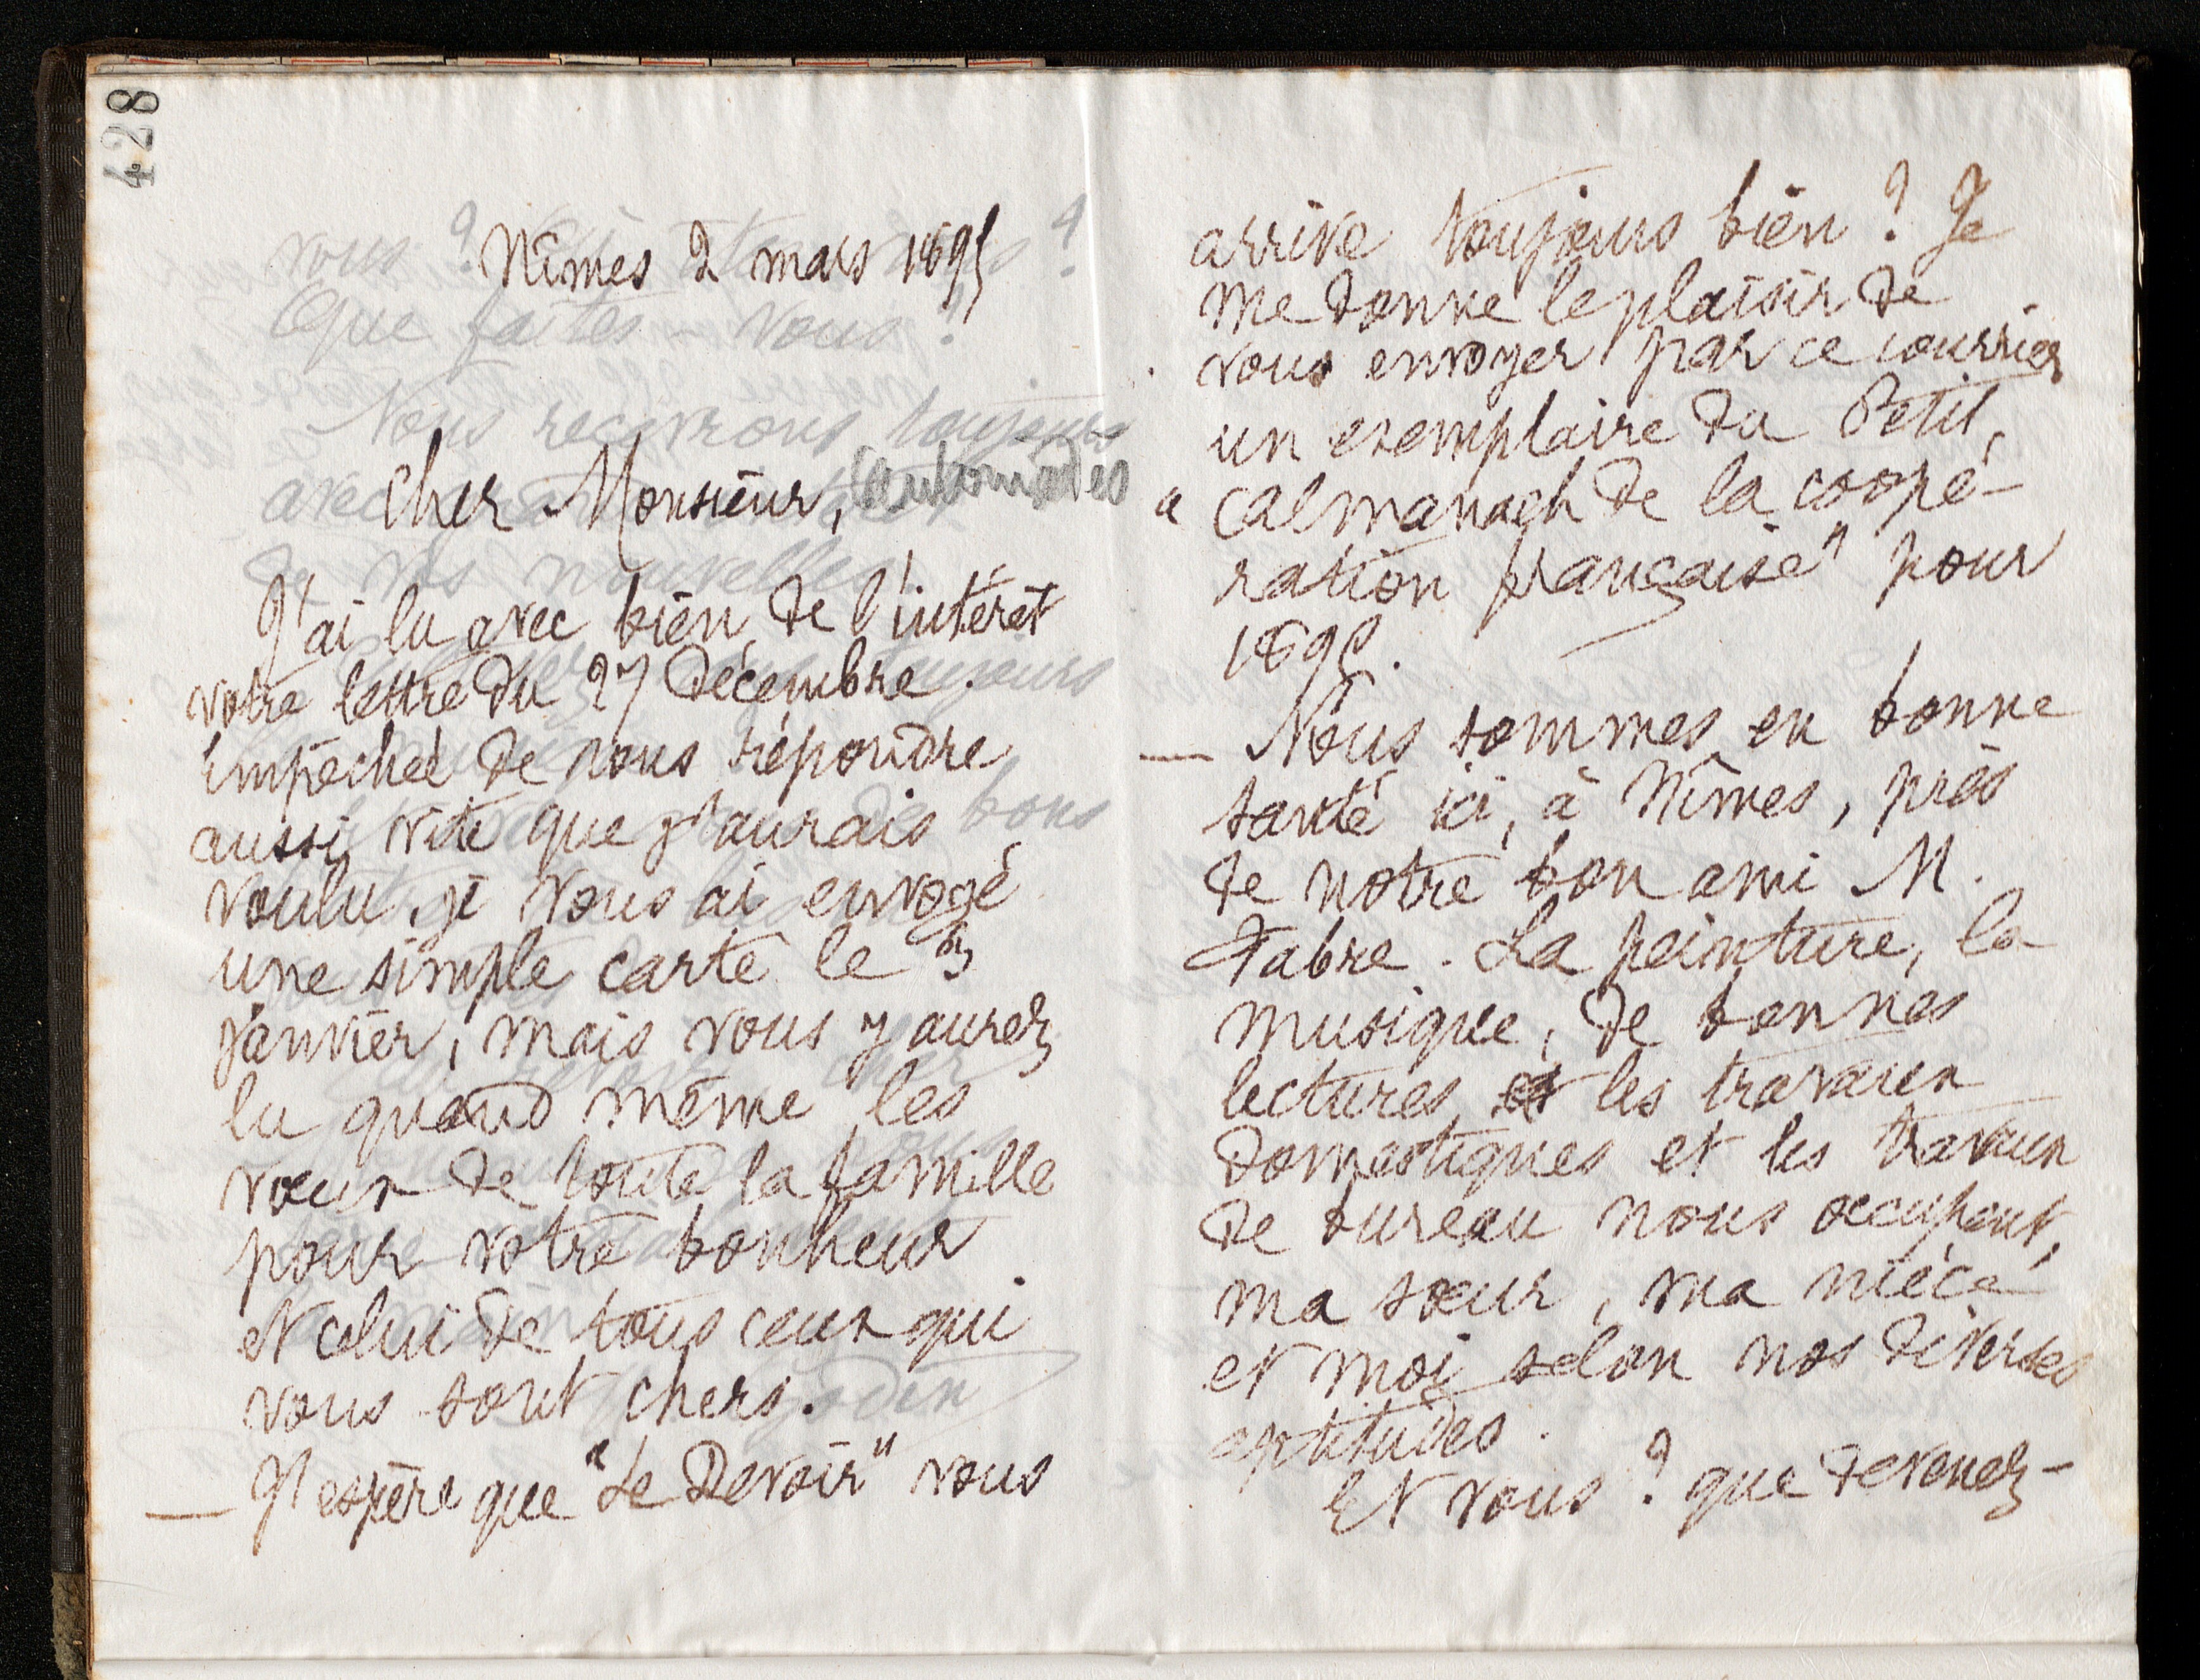 428
Nîmes 2 mars 1895
Cher Monsieur,
J'ai lu avec bien de l'intérêt
votre lettre du 27 Décembre.
Empêchée de vous répondre
aussi vite que j'aurais
voulu, je vous ai envoyé
une simple carte le
janvier, mais vous y aurez
lu quand même les
vœux de toute la famille
pour votre bonheur
et celui de tous ceux qui
vous sont chers.
— J'espère que "Le Devoir" vous
arrive toujours bien ? Je
me donne le plaisir de
vous envoyer par ce courrier
un exemplaire du Petit
"almanach de la coopé-
ration française" pour
1895.
— Nous sommes en bonne
santé ici, à Nîmes, près
de notre bon ami M.
Fabre. La peinture, la
musique, de bonnes
lectures les travaux
domestiques et les travaux
de bureau nous occupent,
ma sœur, ma nièce
et moi selon nos diverses
aptitudes.
Et vous ? que devenez-